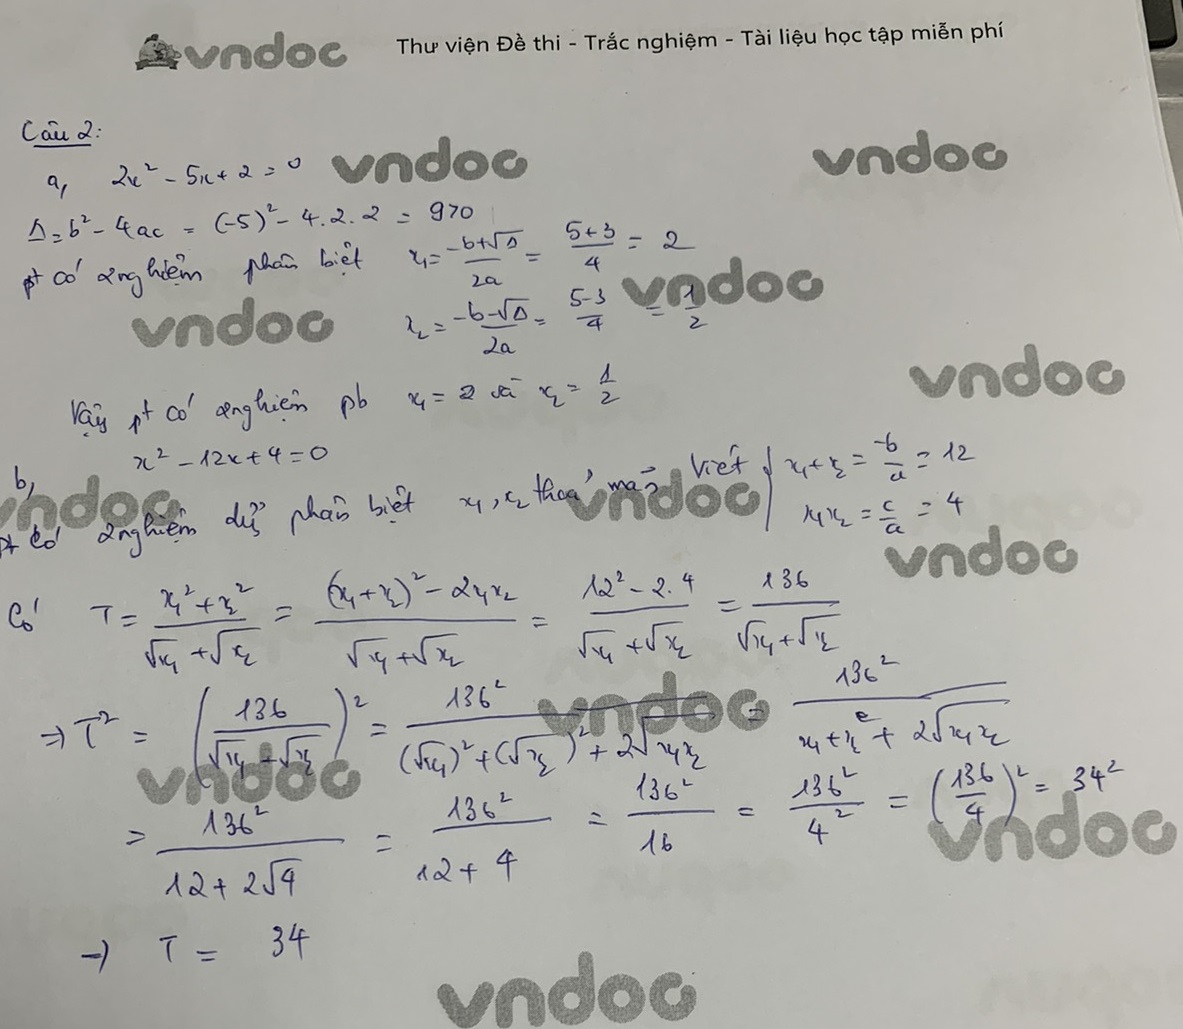 vndoc Thư viện Đề thi - Trắc nghiệm - Tài liệu học tập miễn phí
Câu 2:
a, 2x² - 5x + 2 = 0
vndoc vndoc
Δ = b² - 4ac = (-5)² - 4.2.2 = 9 > 0
pt có 2 nghiệm phân biệt x₁ = (-b+√Δ)/2a = (5+3)/4 = 2
vndoc vndoc
x₂ = (-b-√Δ)/2a = (5-3)/4 = 1/2
vndoc
Vậy pt có 2 nghiệm pb x₁ = 2 và x₂ = 1/2
b, x² - 12x + 4 = 0
vndoc vndoc
pt có 2 nghiệm phân biệt x₁, x₂ thoả mãn Viét { x₁ + x₂ = -b/a = 12
x₁x₂ = c/a = 4
vndoc
Có T = (x₁² + x₂²)/(√x₁ + √x₂) = ((x₁+x₂)² - 2x₁x₂)/(√x₁ + √x₂) = (12² - 2.4)/(√x₁ + √x₂) = 136/(√x₁ + √x₂)
vndoc
⇒ T² = (136/(√x₁ + √x₂))² = 136²/((√x₁)² + (√x₂)² + 2√x₁x₂) = 136²/(x₁ + x₂ + 2√x₁x₂)
vndoc
= 136²/(12 + 2√4) = 136²/(12 + 4) = 136²/16 = 136²/4² = (136/4)² = 34²
vndoc
→ T = 34
vndoc